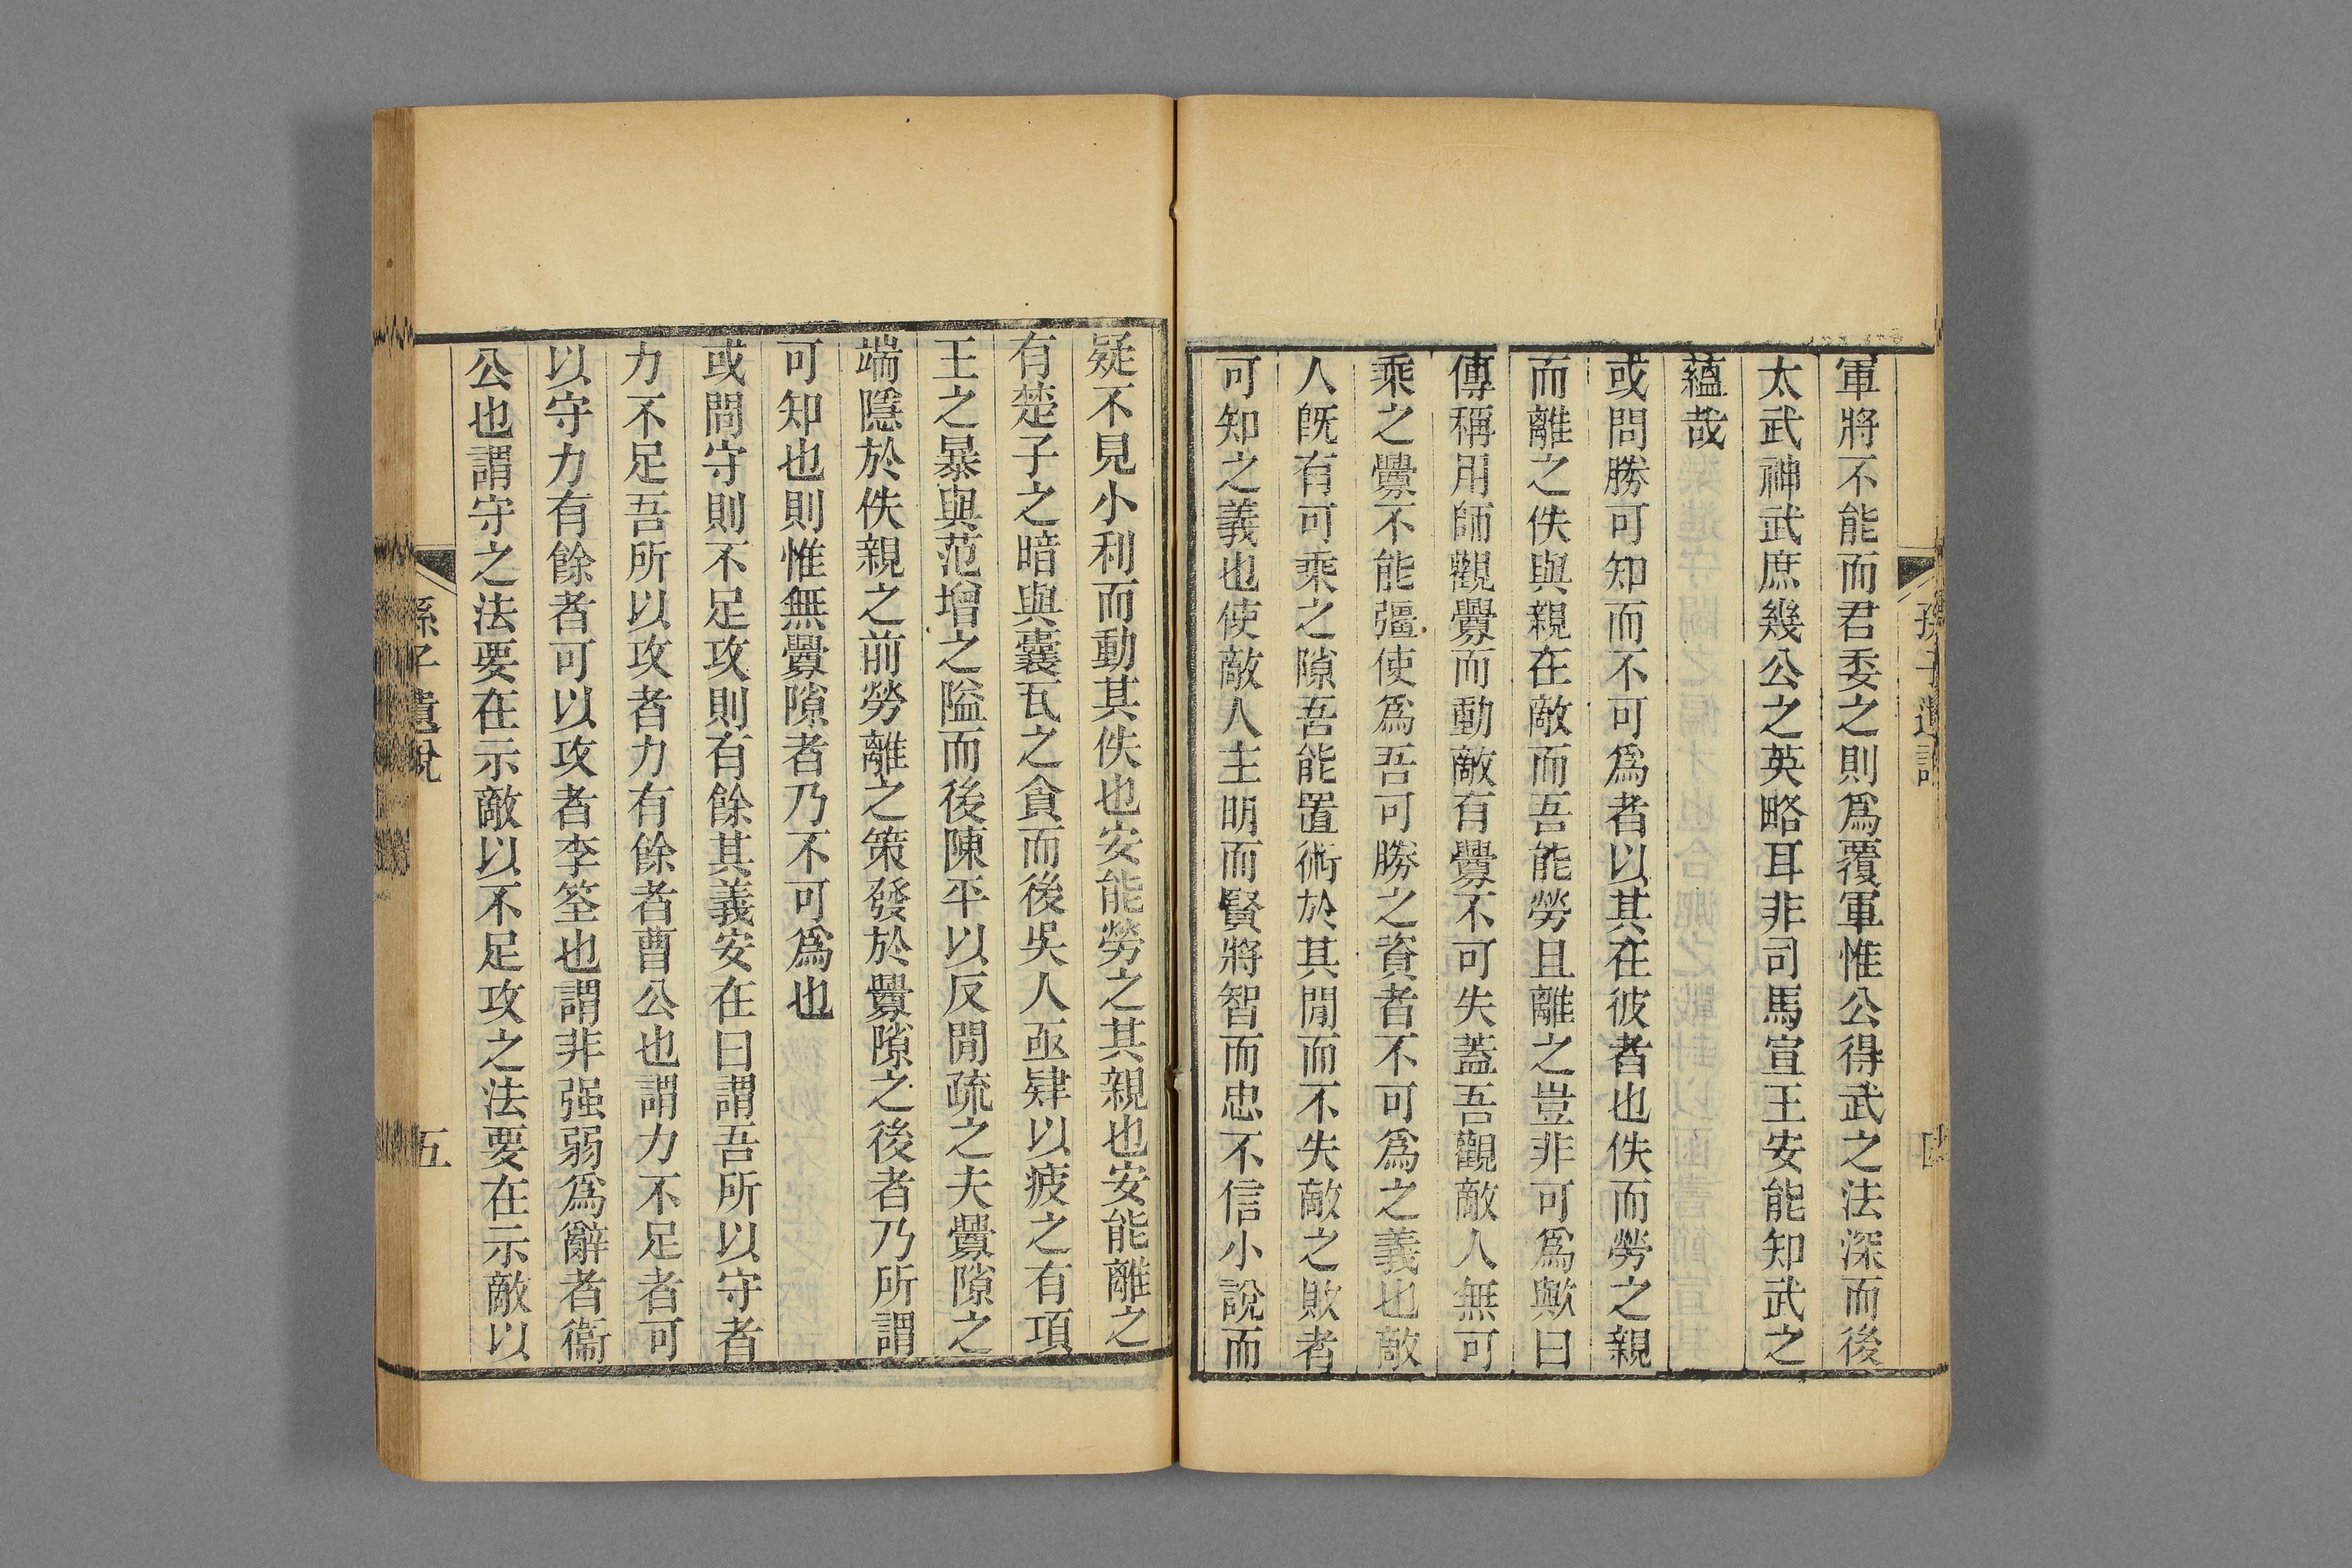 軍將不能而君委之則爲覆軍惟公得武之法深而後
太武神武庶幾公之英略耳非司馬宣王安能知武之
蘊哉
或問勝可知而不可爲者以其在彼者也佚而勞之親
而離之佚與親在敵而吾能勞且離之豈非可爲歟曰
傳稱用師觀釁而動敵有釁不可失蓋吾觀敵人無可
乘之釁不能彊使爲吾可勝之資者不可爲之義也敵
人旣有可乘之隙吾能置術於其閒而不失敵之敗者
可知之義也使敵人主明而賢將智而忠不信小說而
疑不見小利而動其佚也安能勞之其親也安能離之
有楚子之暗與囊瓦之貪而後吳人亟肄以疲之有項
王之暴與范增之隘而後陳平以反閒疏之夫釁隙之
端隱於佚親之前勞離之策發於釁隙之後者乃所謂
可知也則惟無釁隙者乃不可爲也
或問守則不足攻則有餘其義安在曰謂吾所以守者
力不足吾所以攻者力有餘者曹公也謂力不足者可
以守力有餘者可以攻者李筌也謂非强弱爲辭者衞
公也謂守之法要在示敵以不足攻之法要在示敵以
孫子遺說
五